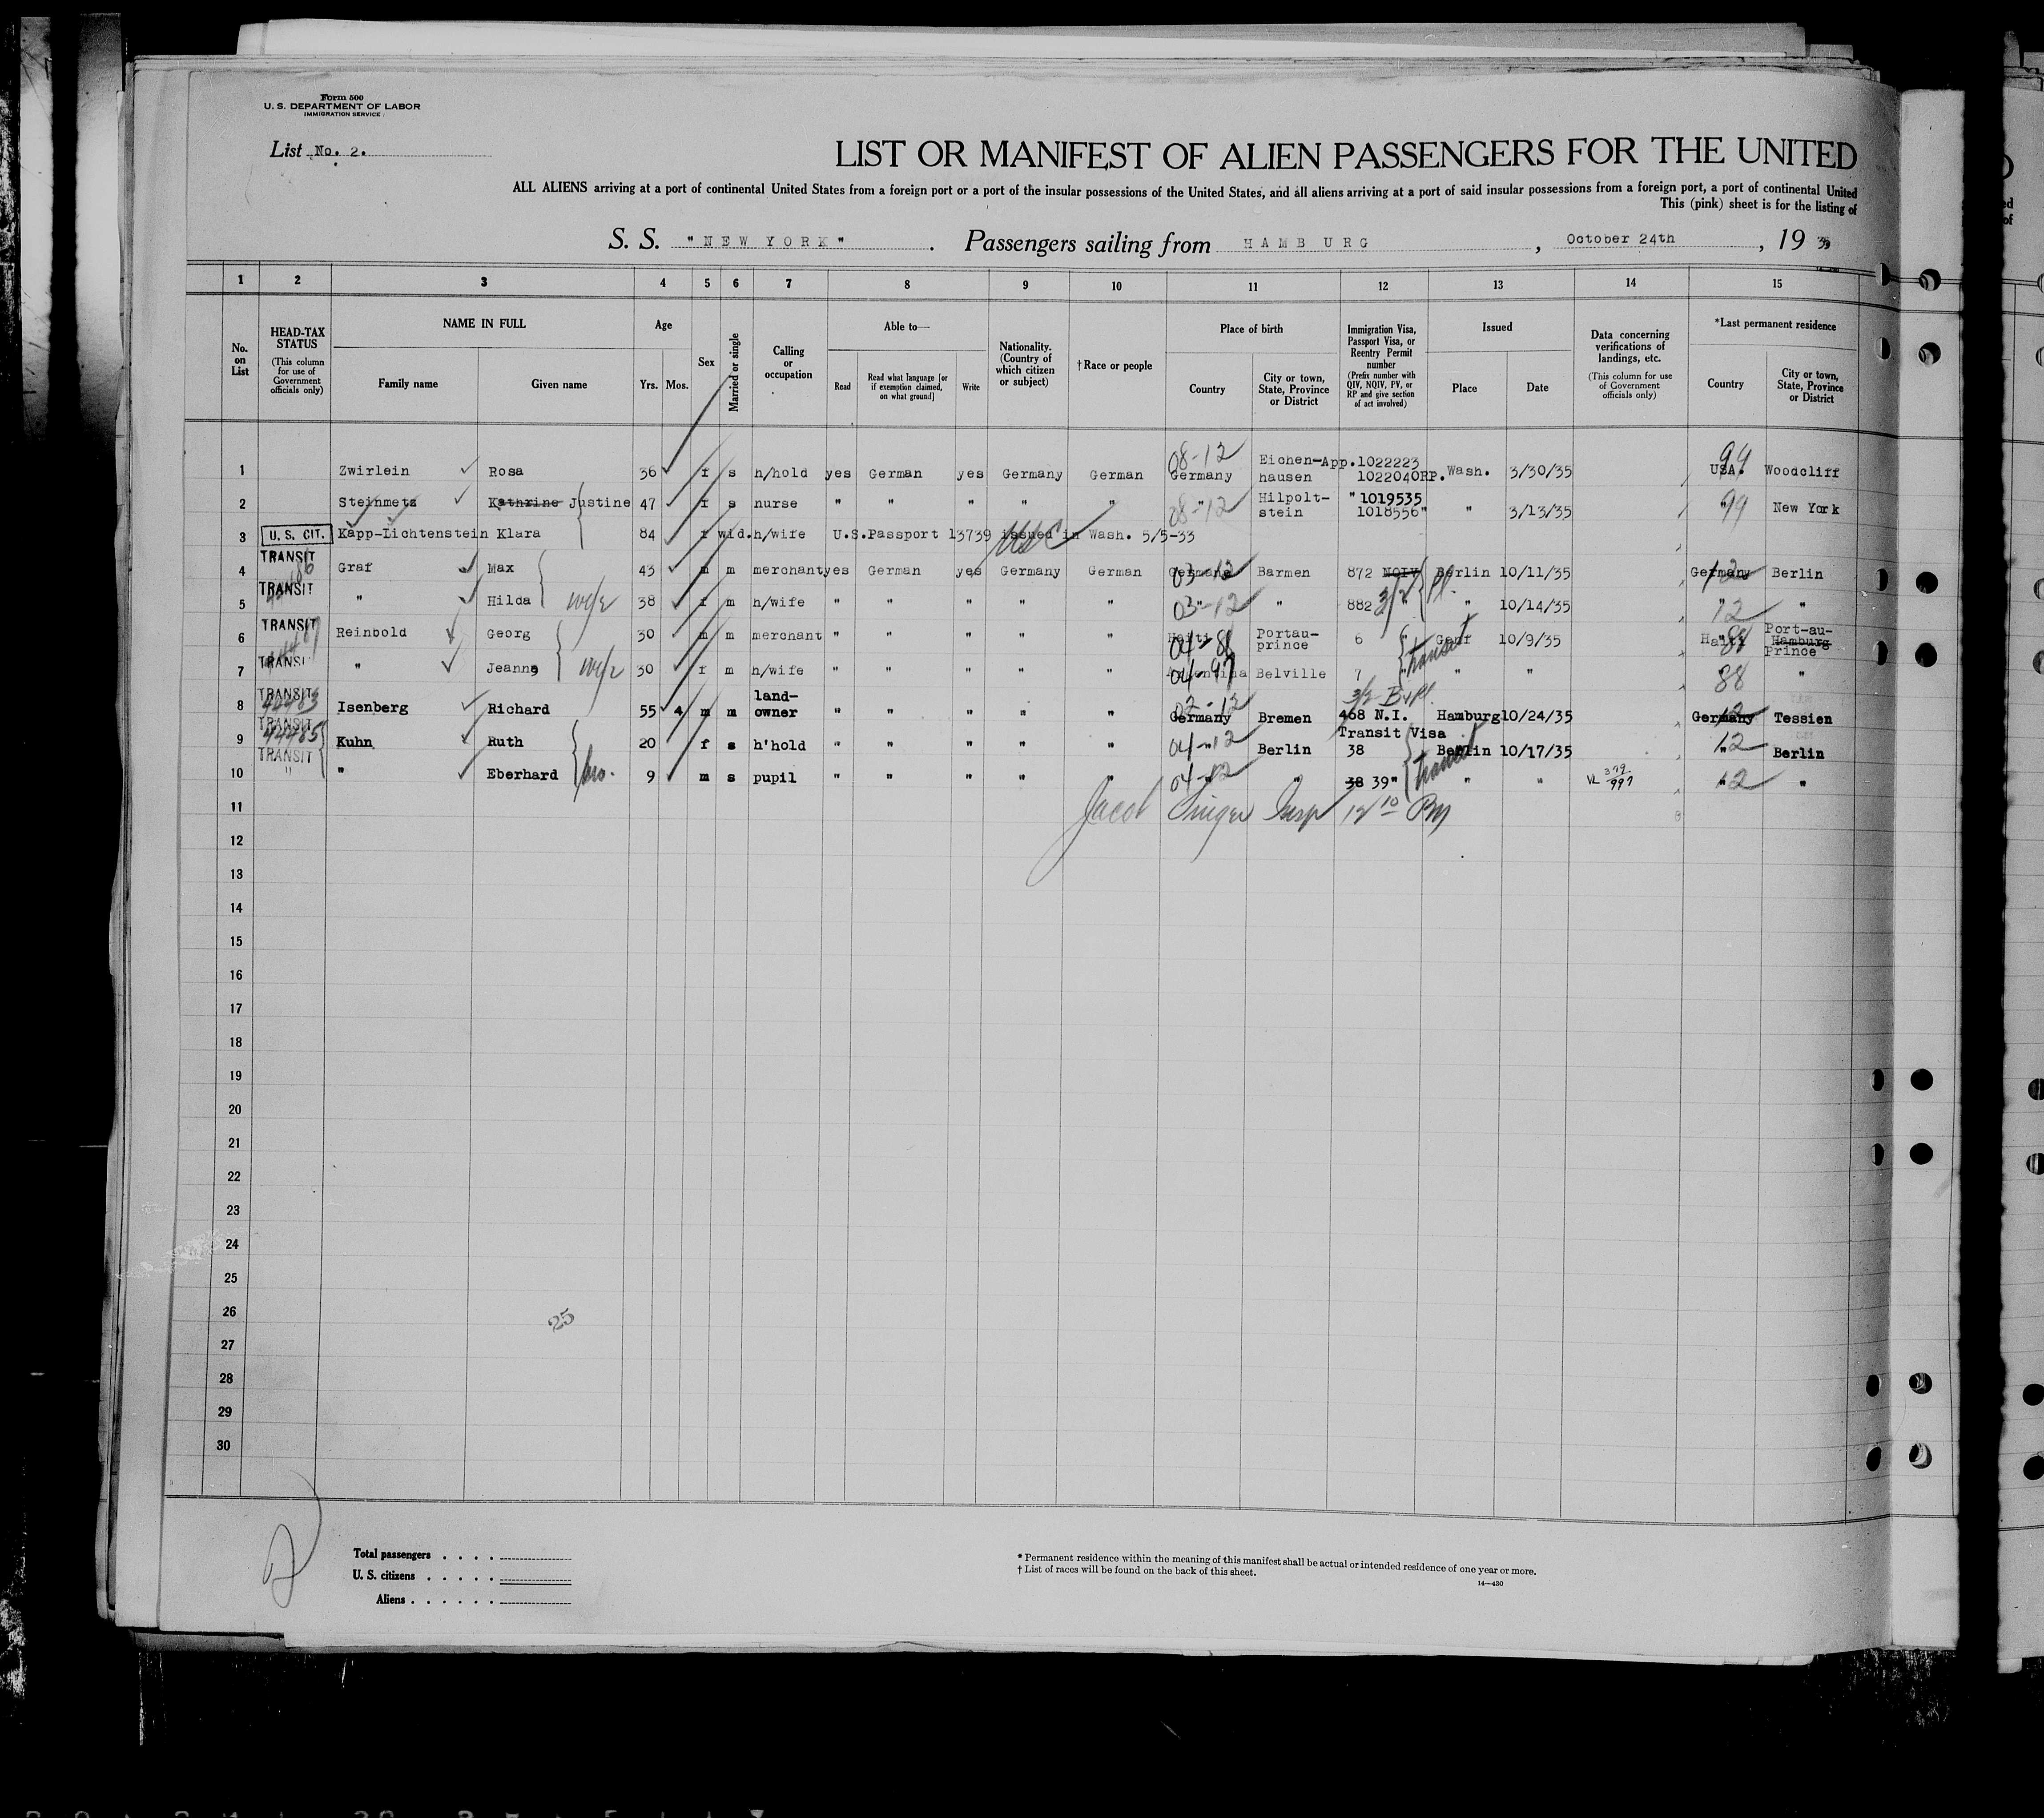 Form 500
U. S. DEPARTMENT OF LABOR
IMMIGRATION SERVICE
List No. 2.
LIST OR MANIFEST OF ALIEN PASSENGERS FOR THE UNITED
ALL ALIENS arriving at a port of continental United States from a foreign port or a port of the insular possessions of the United States, and all aliens arriving at a port of said insular possessions from a foreign port, a port of continental United
This (pink) sheet is for the listing of
S. S. "NEW YORK". Passengers sailing from HAMBURG, October 24th, 19 35
1 2 3 4 5 6 7 8 9 10 11 12 13 14 15
No. on List
HEAD-TAX STATUS (This column for use of Government officials only)
NAME IN FULL
Family name Given name
Age
Yrs. Mos.
Sex
Married or single
Calling or occupation
Able to—
Read Read what language [or if exemption claimed, on what ground] Write
Nationality. (Country of which citizen or subject)
† Race or people
Place of birth
Country City or town, State, Province or District
Immigration Visa, Passport Visa, or Reentry Permit number (Prefix number with QIV, NQIV, PV, or RP and give section of act involved)
Issued
Place Date
Data concerning verifications of landings, etc. (This column for use of Government officials only)
*Last permanent residence
Country City or town, State, Province or District
1 Zwirlein Rosa 36 f s h/hold yes German yes Germany German 08-12 Germany Eichen-hausen App. 1022223 1022040RP. Wash. 3/30/35 99 USA. Woodcliff
2 Steinmetz Kathrine Justine 47 f s nurse " " " " " 08-12 " Hilpolt-stein " 1019535 1018556" " 3/13/35 99 " New York
3 U. S. CIT. Kapp-Lichtenstein Klara 84 f wid. h/wife U.S.Passport 13739 issued in Wash. 5/5-33 USC
4 TRANSIT Graf Max 43 m m merchant yes German yes Germany German 03-12 Germany Barmen 872 NQIV Berlin 10/11/35 12 Germany Berlin
5 TRANSIT " Hilda wife 38 f m h/wife " " " " " 03-12 " " 882 3/2 Pl. " 10/14/35 12 " "
6 TRANSIT Reinbold Georg 30 m m merchant " " " " " 04-88 Haiti Portau-prince 6 " Genf 10/9/35 88 Haiti Hamburg Port-au-Prince
7 TRANSIT " Jeanne wife 30 f m h/wife " " " " " 04-97 Argentina Belville 7 " transit " " 88 "
8 TRANSIT Isenberg Richard 55 4 m m land-owner " " " " " 02-12 Germany Bremen 3/2 468 N.I. Hamburg 10/24/35 12 Germany Tessien
9 TRANSIT 44485 Kuhn Ruth 20 f s h'hold " " " " " 04-12 " Berlin Transit Visa 38 Berlin 10/17/35 12 " Berlin
10 TRANSIT " " Eberhard bro. 9 m s pupil " " " " " 04-12 " " 38 39" transit " " VL 379/997 12 " "
11 Jacob Singer Insp 12 10 PM
12
13
14
15
16
17
18
19
20
21
22
23
24
25
26
25
27
28
29
30
2
Total passengers . . . .
U. S. citizens . . . . .
Aliens . . . . . .
* Permanent residence within the meaning of this manifest shall be actual or intended residence of one year or more.
† List of races will be found on the back of this sheet.
14—430